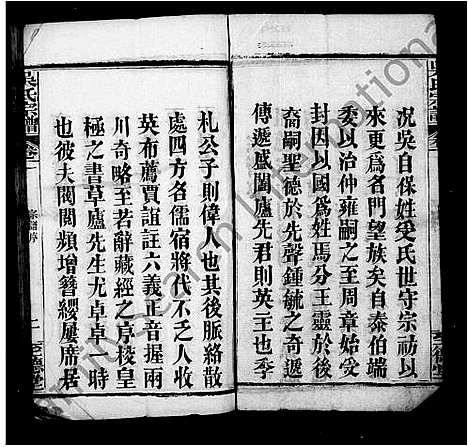 況吳自保姓受氏世守宗祊以
來更爲名門望族矣自泰伯端
委以治仲雍嗣之至周章始受
封因以國爲姓焉分王靈於後
裔嗣聖德於先聲鍾毓之奇遞
傳遞盛闔廬先君則英主也季
札公子則偉人也其後脈絡散
處四方名儒宿將代不乏人收
英布薦賈誼註六義正音握兩
川奇略至若辭藏經之序稜皇
極之書草廬先生尤卓卓一時
也彼夫閥閱頻增簪纓屢席居
吳氏宗譜
卷二